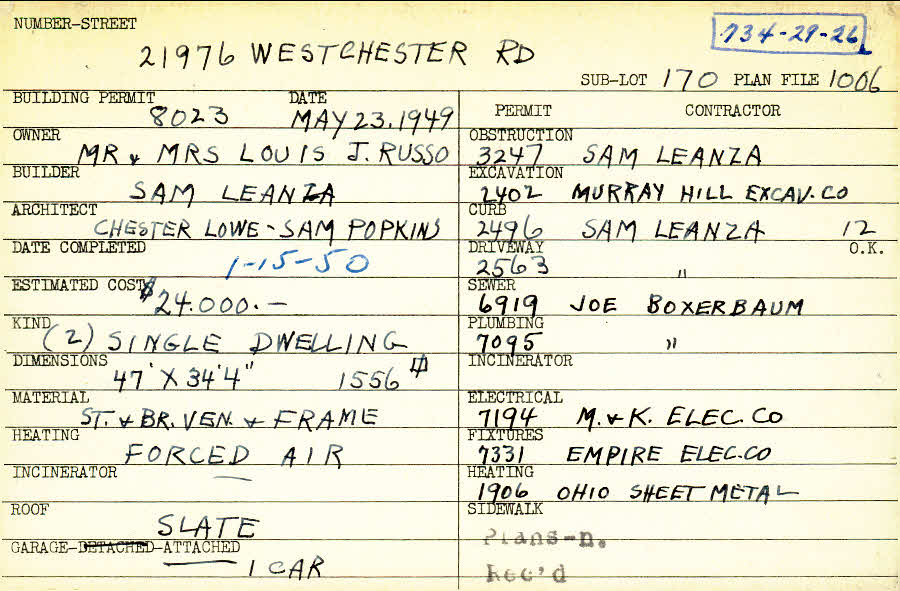 NUMBER-STREET
734-29-26
21976 WESTCHESTER RD
SUB-LOT 170 PLAN FILE 1006
BUILDING PERMIT DATE
8023 MAY 23.1949
OWNER
MR & MRS LOUIS J. RUSSO
BUILDER
SAM LEANZA
ARCHITECT
CHESTER LOWE - SAM POPKINS
DATE COMPLETED
1-15-50
ESTIMATED COST
$24.000.—
KIND
(2) SINGLE DWELLING
DIMENSIONS
47' X 34'4" 1556 #
MATERIAL
ST. & BR. VEN. & FRAME
HEATING
FORCED AIR
INCINERATOR
—
ROOF
SLATE
GARAGE-DETACHED-ATTACHED
1 CAR
PERMIT CONTRACTOR
OBSTRUCTION
3247 SAM LEANZA
EXCAVATION
2402 MURRAY HILL EXCAV. CO
CURB
2496 SAM LEANZA 12
DRIVEWAY O.K.
2563 "
SEWER
6919 JOE BOXERBAUM
PLUMBING
7095 "
INCINERATOR
ELECTRICAL
7194 M. & K. ELEC. CO
FIXTURES
7331 EMPIRE ELEC. CO
HEATING
1906 OHIO SHEET METAL
SIDEWALK
Plans-n.
Rec'd